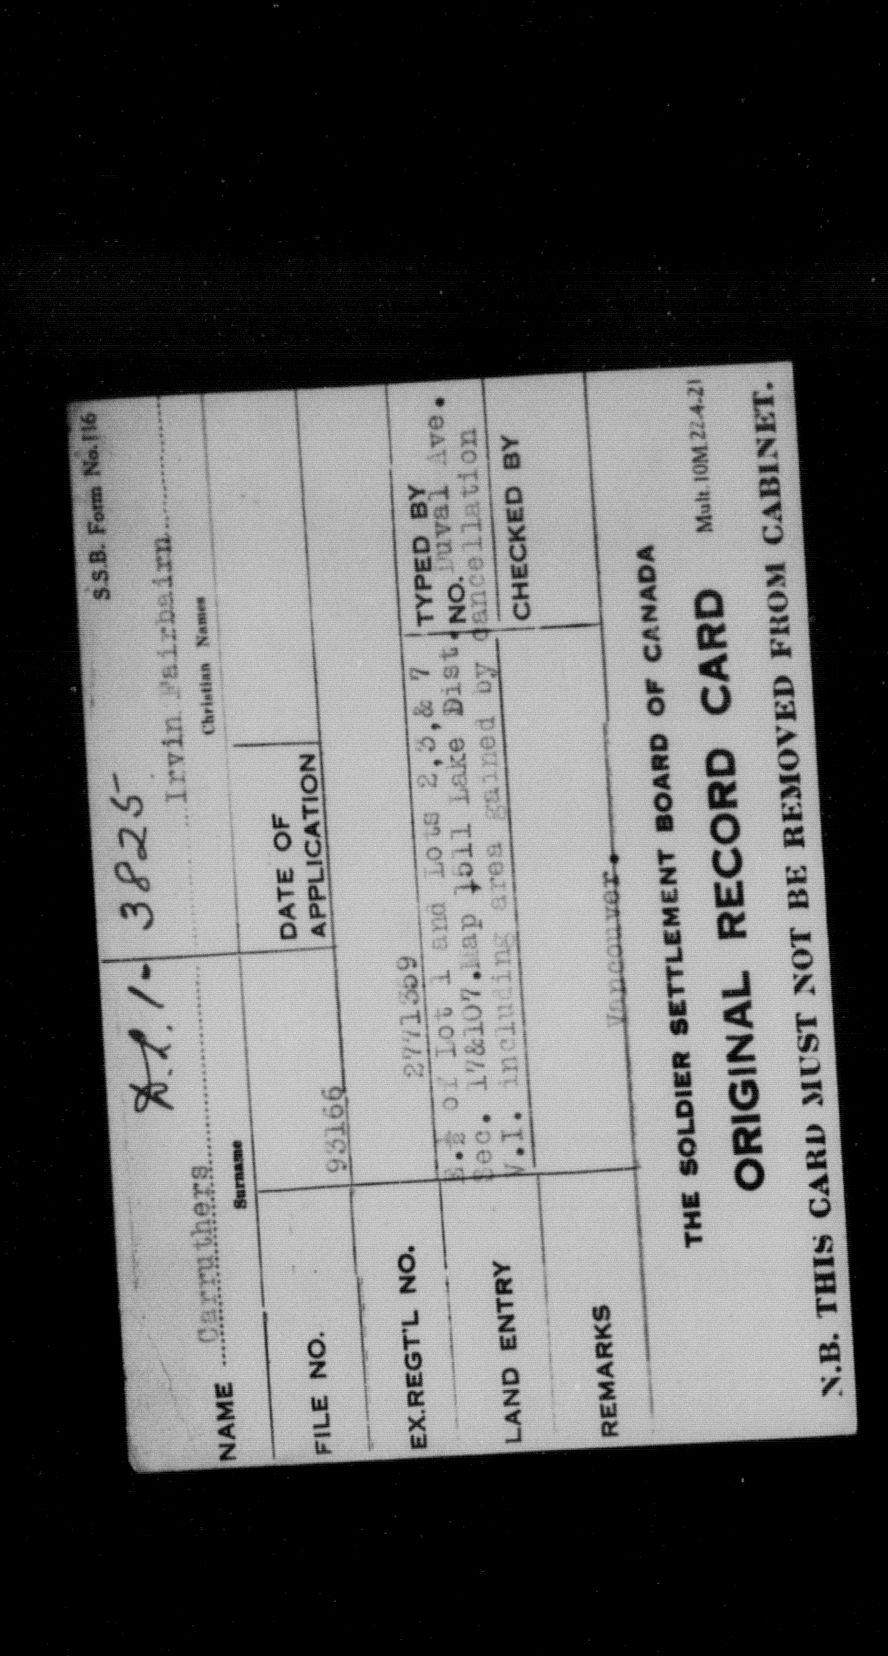 S.S.B. Form No. 116
D.L. 1- 3825-
NAME Carruthers Irvin Fairbairn
Surname Christian Names
FILE NO. 93166 DATE OF APPLICATION
EX.REGT'L NO. 2771359 TYPED BY
of Lot 1 and Lots 2,3,& 7 NO. Duval Ave.
LAND ENTRY Sec. 17&107.Map 1511 Lake Dist.
V.I. including area gained by cancellation
CHECKED BY
REMARKS Vancouver.
THE SOLDIER SETTLEMENT BOARD OF CANADA
ORIGINAL RECORD CARD Mult. 10M.22-4-21
N.B. THIS CARD MUST NOT BE REMOVED FROM CABINET.